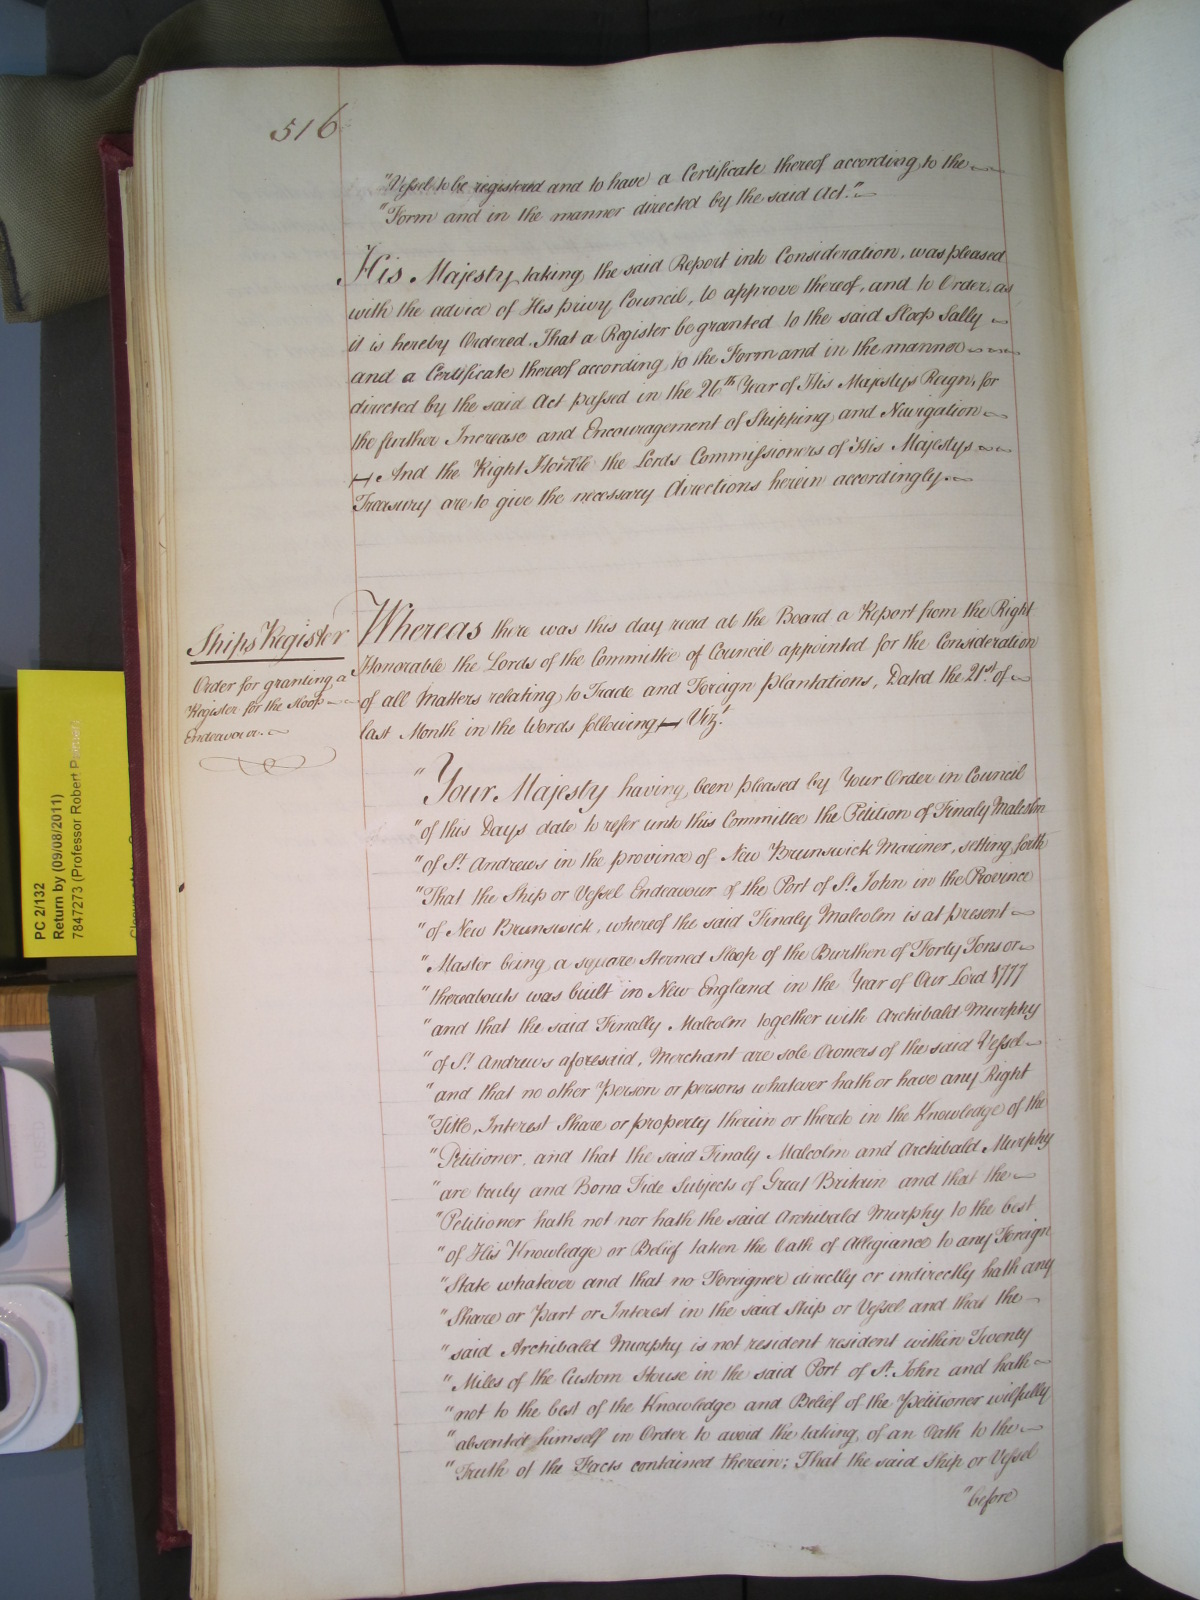 516
"Vessel to be registered and to have a Certificate thereof according to the
"Form and in the manner directed by the said Act."
His Majesty taking the said Report into Consideration, was pleased
with the advice of His privy Council, to approve thereof, and to Order, as
it is hereby Ordered, That a Register be granted to the said Sloop Sally
and a Certificate thereof according to the Form and in the manner
directed by the said Act passed in the 26th Year of His Majestys Reign, for
the further Increase and Encouragement of Shipping and Navigation
And the Right Honble the Lords Commissioners of His Majestys
Treasury are to give the necessary Directions herein accordingly
Ships Register
Order for granting a
Register for the Sloop
Endeavour.
Whereas there was this day read at the Board a Report from the Right
Honorable the Lords of the Committee of Council appointed for the Consideration
of all Matters relating to Trade and Foreign plantations, Dated the 21st of
last Month in the Words following Vizt
"Your Majesty having been pleased by Your Order in Council
"of this Days date to refer unto this Committee the Petition of Finaly Malcolm
"of St Andrews in the province of New Brunswick Mariner, setting forth
"That the Ship or Vessel Endeavour of the Port of St John in the Province
"of New Brunswick, whereof the said Finaly Malcolm is at present
"Master being a square sterned Sloop of the Burthen of Forty Tons or
"thereabouts was built in New England in the Year of Our Lord 1777
"and that the said Finally Malcolm together with Archibald Murphy
"of St Andrews aforesaid, Merchant are sole Owners of the said Vessel
"and that no other Person or persons whatever hath or have any Right
"Title, Interest Share or property therein or thereto in the Knowledge of the
"Petitioner, and that the said Finaly Malcolm and Archibald Murphy
"are truly and Bona Fide Subjects of Great Britain and that the
"Petitioner hath not nor hath the said Archibald Murphy to the best
"of His Knowledge or Belief taken the Oath of Allegiance to any Foreign
"State whatever and that no Foreigner directly or indirectly hath any
"Share or Part or Interest in the said Ship or Vessel and that the
"said Archibald Murphy is not resident resident within Twenty
"Miles of the Custom House in the said Port of St John and hath
"not to the best of the Knowledge and Belief of the Petitioner wilfully
"absented himself in Order to avoid the taking of an Oath to the
"Truth of the Facts contained therein; That the said Ship or Vessel
"before
PC 2/132
Return by (09/08/2011)
7847273 (Professor Robert